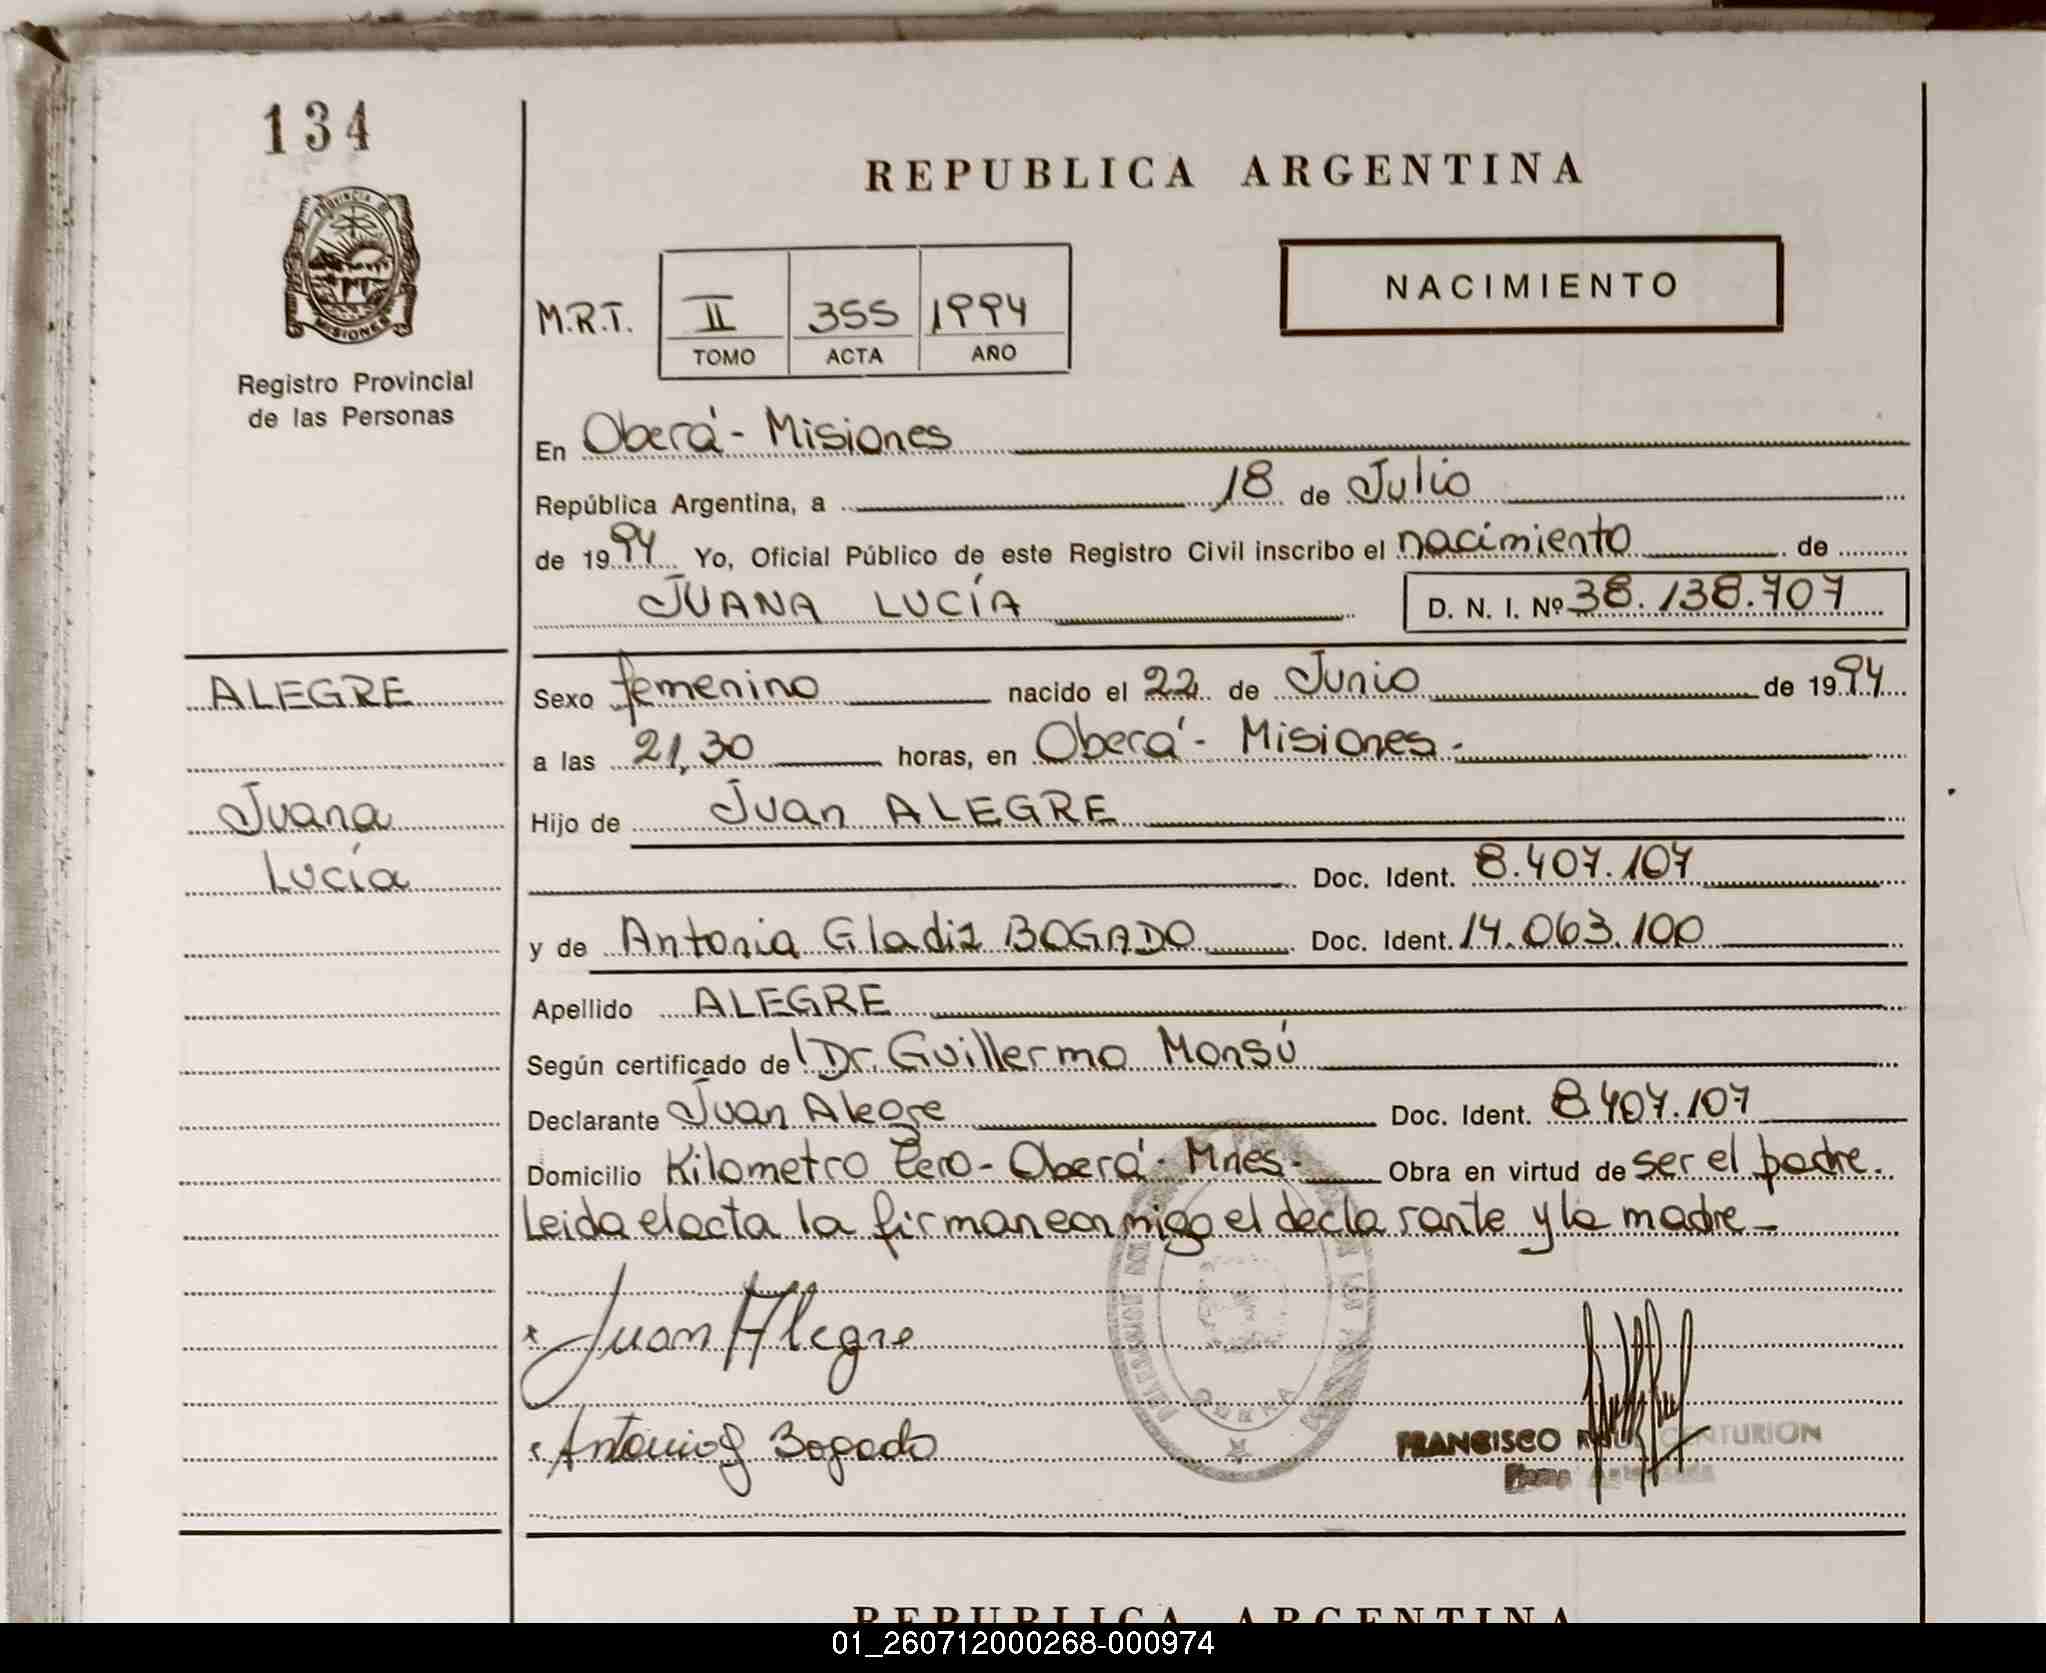 134
REPUBLICA ARGENTINA
PROVINCIA DE
MISIONES
Registro Provincial
de las Personas
NACIMIENTO
M.R.T. II 355 1994
TOMO ACTA AÑO
En Oberá - Misiones
República Argentina, a 18 de Julio
de 1994 Yo, Oficial Público de este Registro Civil inscribo el nacimiento de
JUANA LUCÍA D. N. I. Nº 38.138.707
ALEGRE
Juana
Lucía
Sexo femenino nacido el 22 de Junio de 1994
a las 21,30 horas, en Oberá - Misiones.
Hijo de Juan ALEGRE
Doc. Ident. 8.407.107
y de Antonia Gladiz BOGADO Doc. Ident. 14.063.100
Apellido ALEGRE
Según certificado de Dr. Guillermo Monsú
Declarante Juan Alegre Doc. Ident. 8.407.107
Domicilio Kilometro Cero - Oberá - Mnes - Obra en virtud de ser el padre.
Leida el acta la firman conmigo el declarante y la madre -
Juan Alegre
Antonia G Bogado
FRANCISCO RAUL CENTURION
Firma
REPUBLICA ARGENTINA
01_260712000268-000974